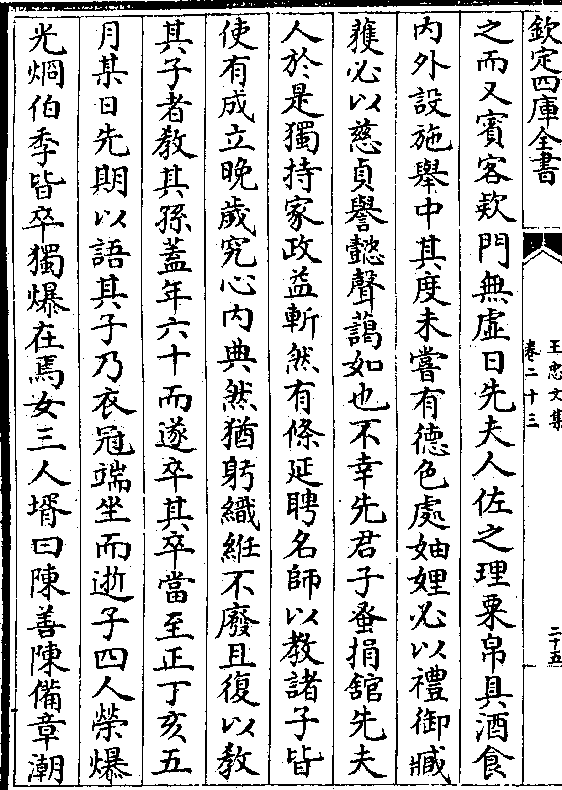 欽定四庫全書
王忠文集
卷二十三
二十五
之而又賓客欵門無虚日先夫人佐之理粟帛具酒食
内外設施舉中其度未嘗有德色處妯娌必以禮御臧
獲必以慈貞譽懿聲藹如也不幸先君子蚤捐舘先夫
人於是獨持家政益斬然有條延聘名師以教諸子皆
使有成立晩歲究心内典然猶躬織絍不廢且復以教
其子者教其孫蓋年六十而遂卒其卒當至正丁亥五
月某日先期以語其子乃衣冠端坐而逝子四人榮爆
光烱伯季皆卒獨爆在焉女三人壻曰陳善陳備章潮